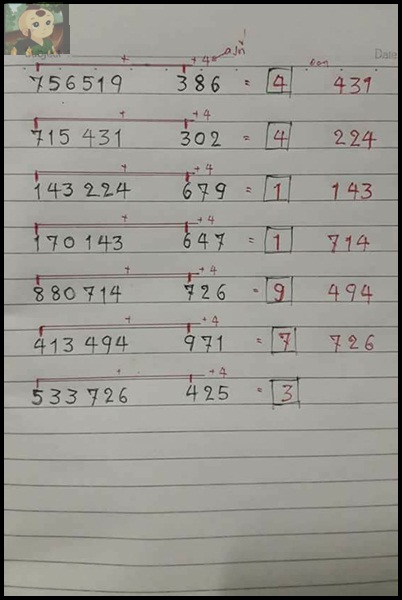 Date
+ +4
756519 386 = 4 431
+ +4
715 431 302 = 4 224
+ +4
143 224 679 = 1 143
+ +4
170 143 647 = 1 714
+ +4
880 714 726 = 9 494
+ +4
413 494 971 = 7 726
+ +4
533 726 425 = 3